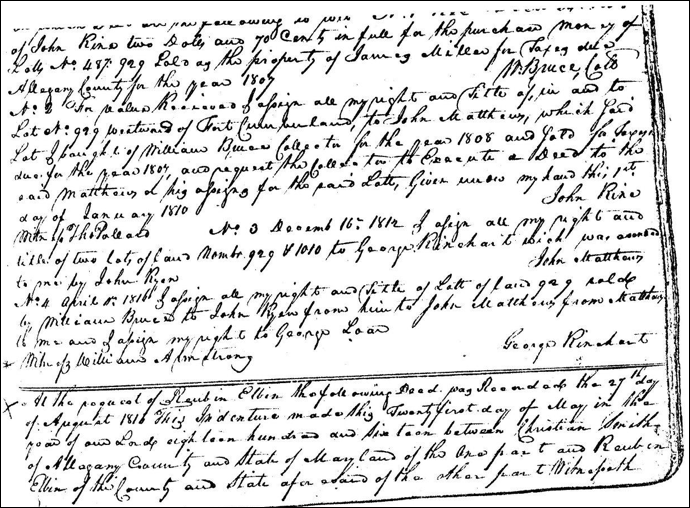 following to wit
of John Rine two Dolls and 70 Cents in full for the purchase money of
Lotts No. 487. 929 Sold as the property of James Miller for Taxes due
Allegany County for the year 1807 W. Bruce, Coltr
No. 2 For value Received I assign all my right and Title of, in and to
Lot No. 929 westward of Fort Cumberland, to John Matthews, which said
Lot I bought of William Bruce Collector for the year 1808 and sold for taxes
due for the year 1807, and request the Collector to Execute a Deed to the
said Matthews or his assigns for the said Lott, Given under my hand this 1st
day of January 1810 John Rine
Witns Thos Pollard No. 3 Decemb 16th 1812 I asign all my right and
title of two lots of land Nombr 929 & 1010 to George Rinehart wich was asended
to me by John Ryon John Matthews
No. 4 April 1816 I asign all my right and Title of Lott of land 929 sold
by William Bruce to John Ryon from him to John Matthews from Matthews
to me and I asign my right to George Loar
Witns William Armstrong George Rinehart
At the request of Reubin Elbin the following Deed was Recorded the 27th day
of August 1816 This Indenture made this Twenty first day of May in the
year of our Lord eighteen hundred and sixteen between Christian Smith
of Allegany County and State of Maryland of the One part and Reubin
Elbin of the County and State afore said of the other part Witnesseth